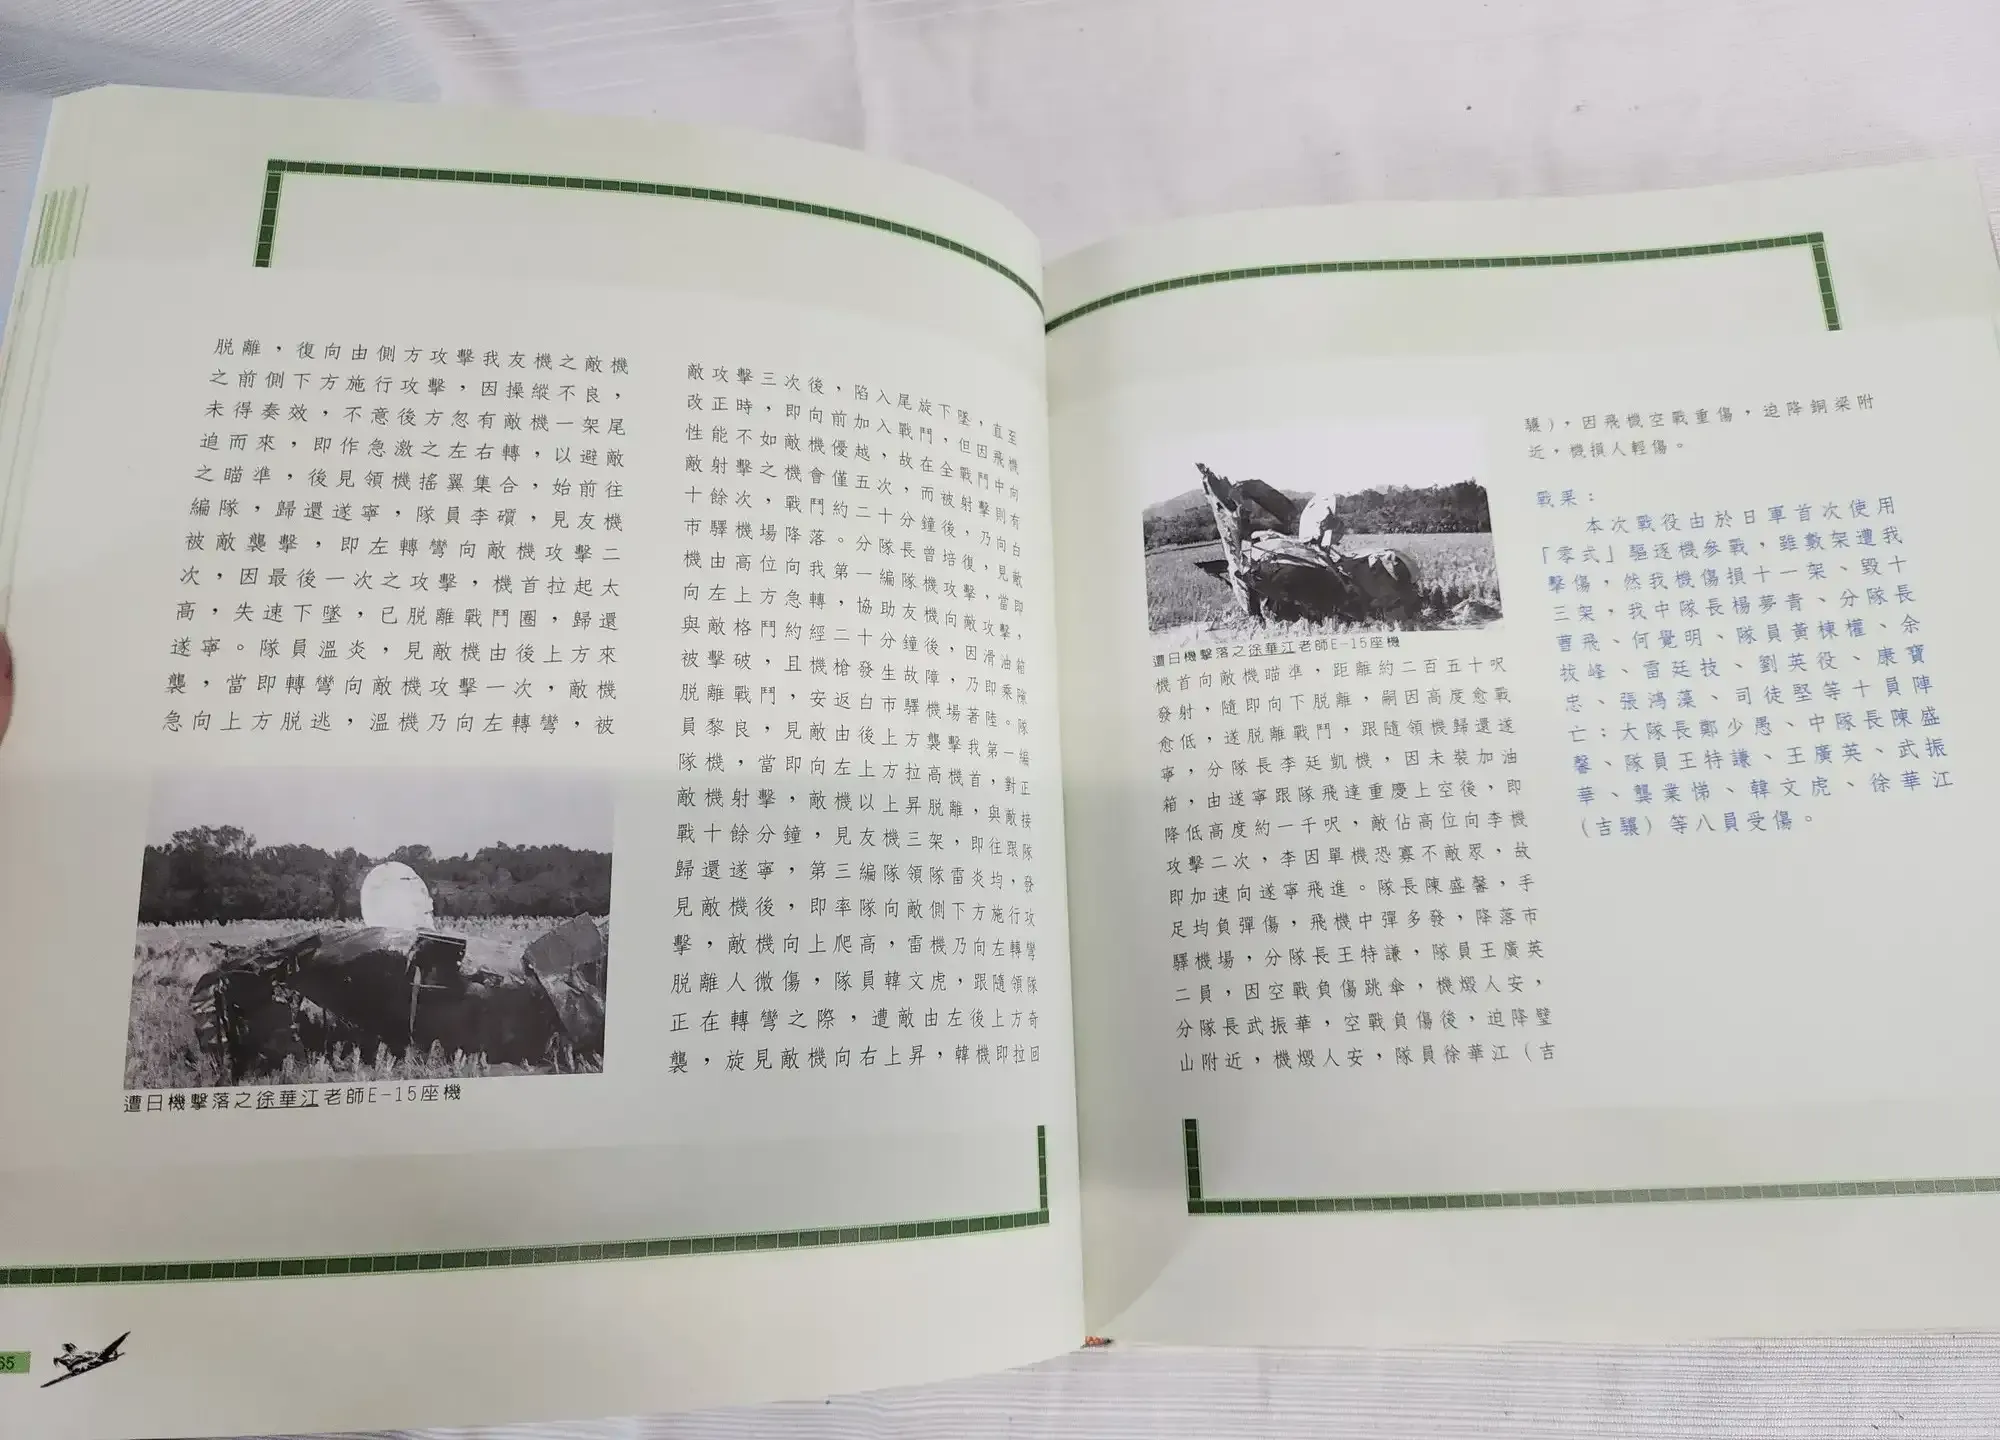 脫離，復向由側方攻擊我友機之敵機
之前側下方施行攻擊，因操縱不良，
未得奏效，不意後方忽有敵機一架尾
追而來，即作急激之左右轉，以避敵
之瞄準，後見領機搖翼集合，始前往
編隊，歸還遂寧，隊員李礩，見友機
被敵襲擊，即左轉彎向敵機攻擊二
次，因最後一次之攻擊，機首拉起太
高，失速下墜，已脫離戰鬥圈，歸還
遂寧。隊員溫炎，見敵機由後上方來
襲，當即轉彎向敵機攻擊一次，敵機
急向上方脫逃，溫機乃向左轉彎，被
遭日機擊落之徐華江老師E-15座機
65
敵攻擊三次後，陷入尾旋下墜，直至
改正時，即向前加入戰鬥，但因飛機
性能不如敵機優越，故在全戰鬥中向
敵射擊之機會僅五次，而被射擊則有
十餘次，戰鬥約二十分鐘後，乃向白
市驛機場降落。分隊長曾培復，見敵
機由高位向我第一編隊機攻擊，當即
向左上方急轉，協助友機向敵攻擊，
與敵格鬥約經二十分鐘後，因滑油箱
被擊破，且機槍發生故障，乃即乘隙
脫離戰鬥，安返白市驛機場著陸。隊
員黎良，見敵由後上方襲擊我第一編
隊機，當即向左上方拉高機首，對正
敵機射擊，敵機以上昇脫離，與敵接
戰十餘分鐘，見友機三架，即往跟隊
歸還遂寧，第三編隊領隊雷炎均，發
見敵機後，即率隊向敵側下方施行攻
擊，敵機向上爬高，雷機乃向左轉彎
脫離人微傷，隊員韓文虎，跟隨領隊
正在轉彎之際，遭敵由左後上方奇
襲，旋見敵機向右上昇，韓機即拉回
遭日機擊落之徐華江老師E-15座機
機首向敵機瞄準，距離約二百五十呎
發射，隨即向下脫離，嗣因高度愈戰
愈低，遂脫離戰鬥，跟隨領機歸還遂
寧，分隊長李廷凱機，因未裝加油
箱，由遂寧跟隊飛達重慶上空後，即
降低高度約一千呎，敵佔高位向李機
攻擊二次，李因單機恐寡不敵眾，故
即加速向遂寧飛進。隊長陳盛馨，手
足均負彈傷，飛機中彈多發，降落市
驛機場，分隊長王特謙，隊員王廣英
二員，因空戰負傷跳傘，機燬人安，
分隊長武振華，空戰負傷後，迫降璧
山附近，機燬人安，隊員徐華江（吉
驤），因飛機空戰重傷，迫降銅梁附
近，機損人輕傷。
戰果：
本次戰役由於日軍首次使用
「零式」驅逐機參戰，雖數架遭我
擊傷，然我機傷損十一架、毀十
三架，我中隊長楊夢青、分隊長
曹飛、何覺明、隊員黃棟權、余
拔峰、雷廷技、劉英役、康寶
忠、張鴻藻、司徒堅等十員陣
亡；大隊長鄭少愚、中隊長陳盛
馨、隊員王特謙、王廣英、武振
華、龔業悌、韓文虎、徐華江
（吉驤）等八員受傷。